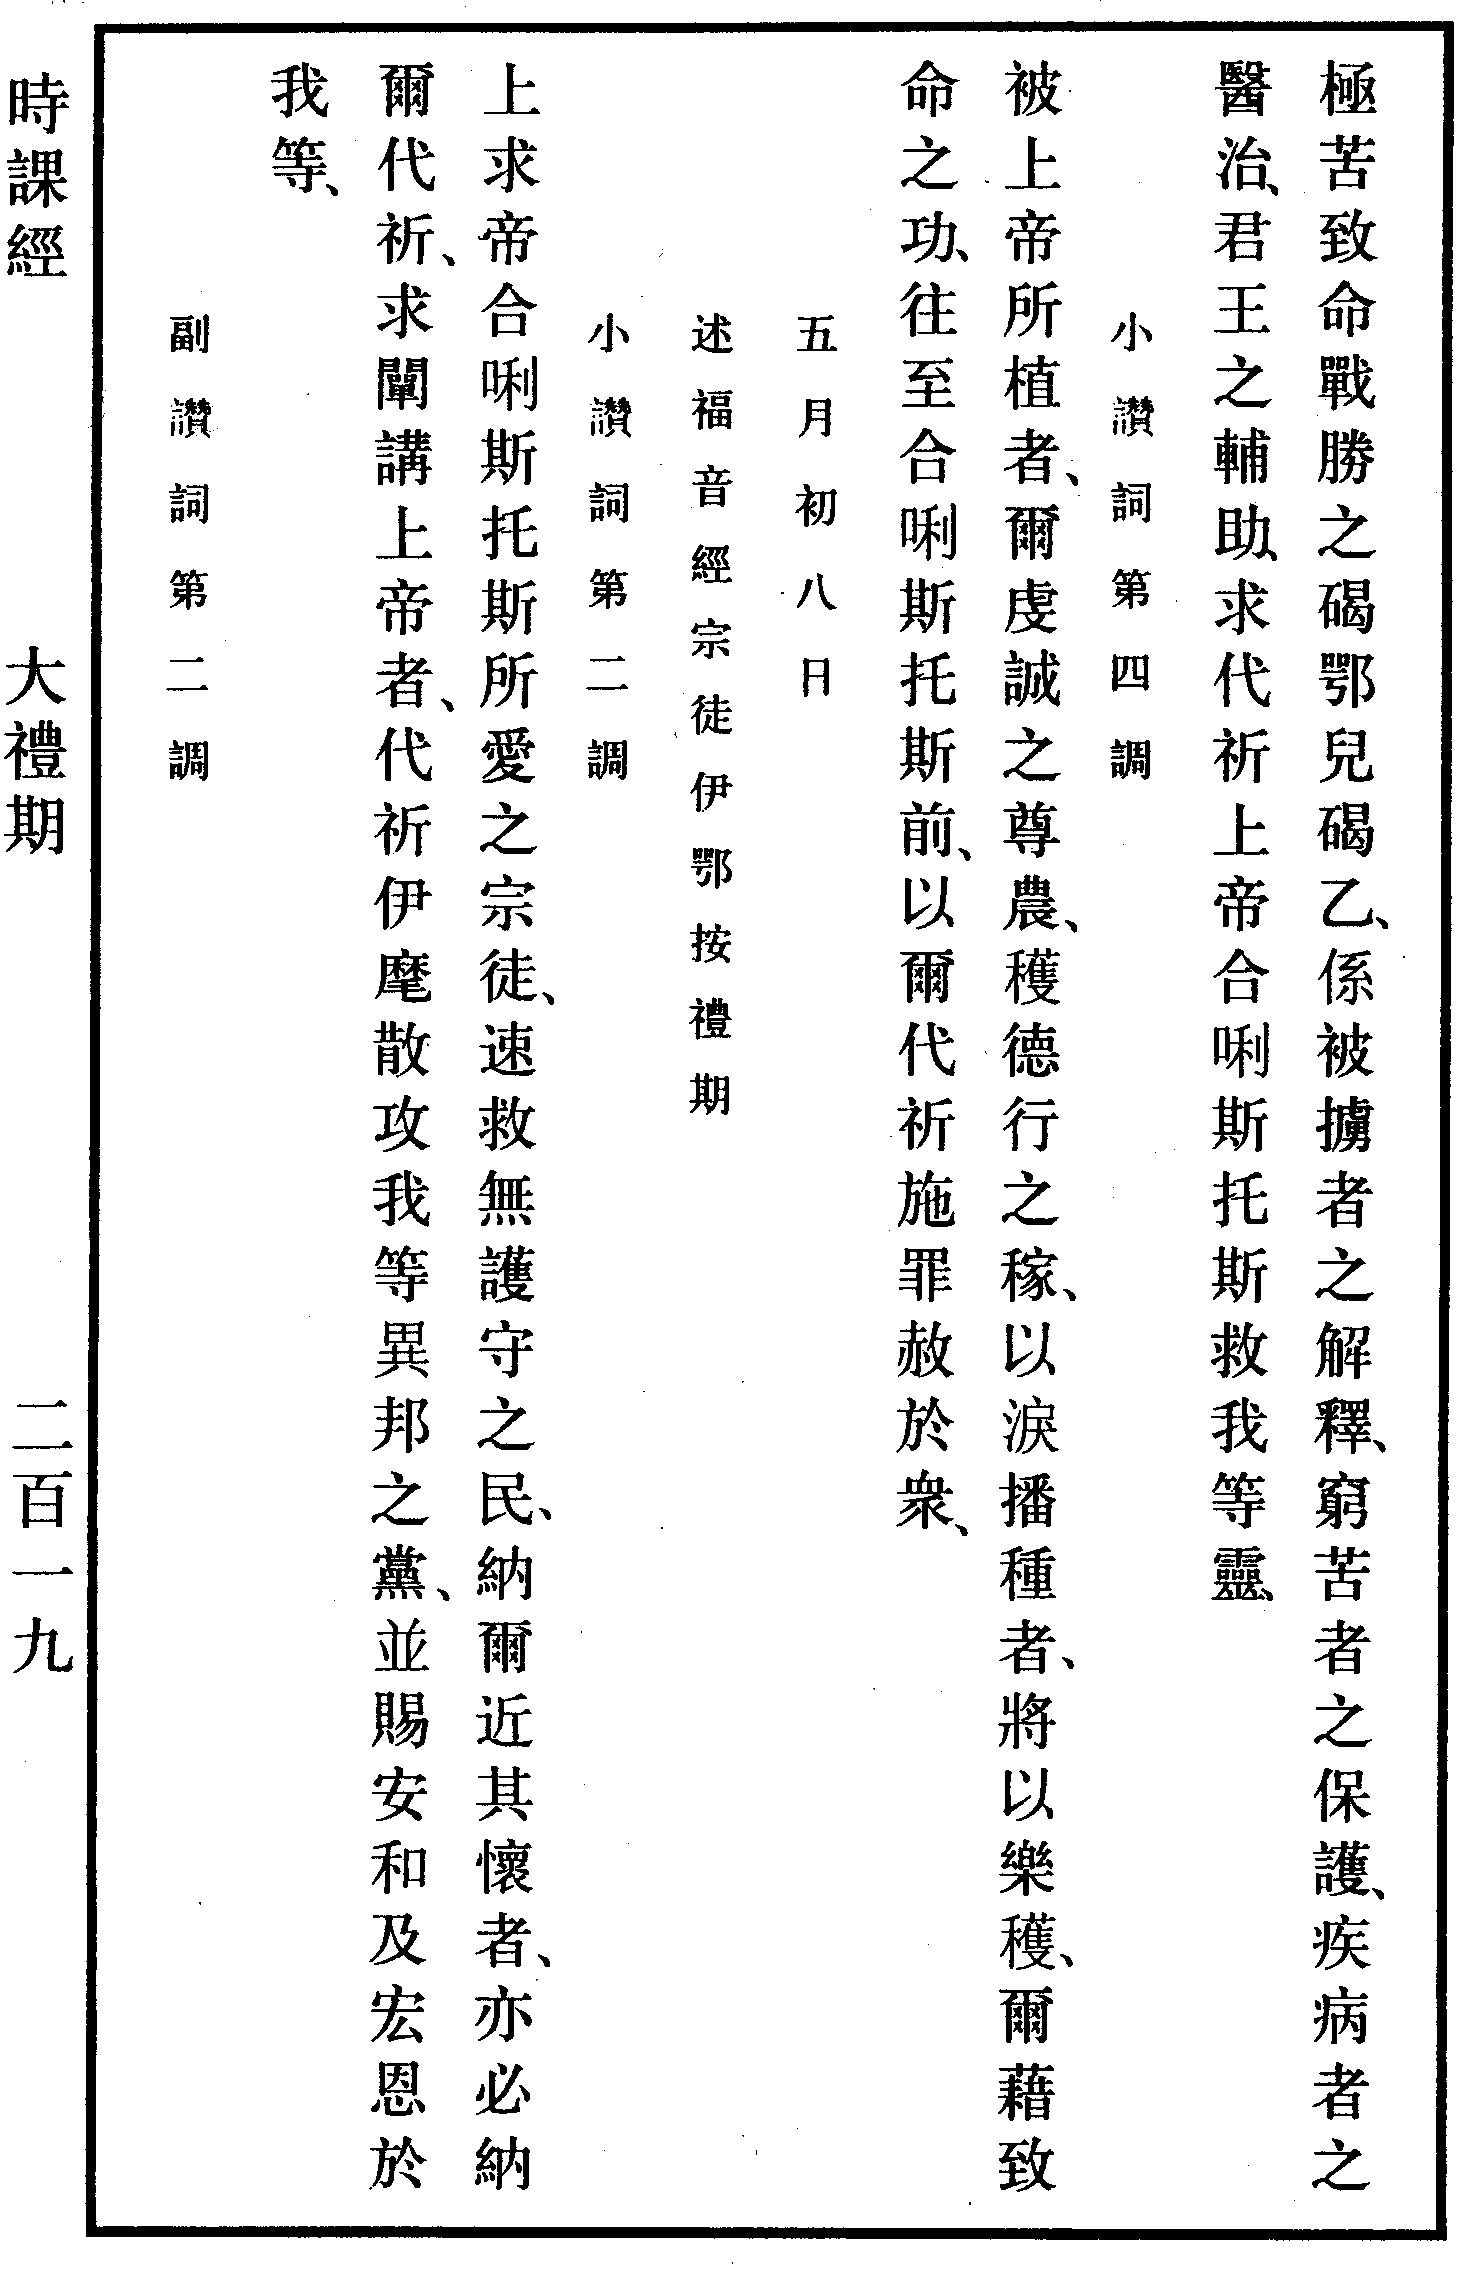 極苦致命戰勝之碣鄂兒碣乙、係被擄者之解釋、窮苦者之保護、疾病者之
醫治、君王之輔助、求代祈上帝合唎斯托斯救我等靈、
小讚詞第四調
被上帝所植者、爾虔誠之尊農、穫德行之稼、以淚播種者、將以樂穫、爾藉致
命之功、往至合唎斯托斯前、以爾代祈施罪赦於衆、
五月初八日
述福音經宗徒伊鄂按禮期
小讚詞第二調
上求帝合唎斯托斯所愛之宗徒、速救無護守之民、納爾近其懷者、亦必納
爾代祈、求闡講上帝者、代祈伊麾散攻我等異邦之黨、並賜安和及宏恩於
我等、
副讚詞第二調
時課經 大禮期 二百一九